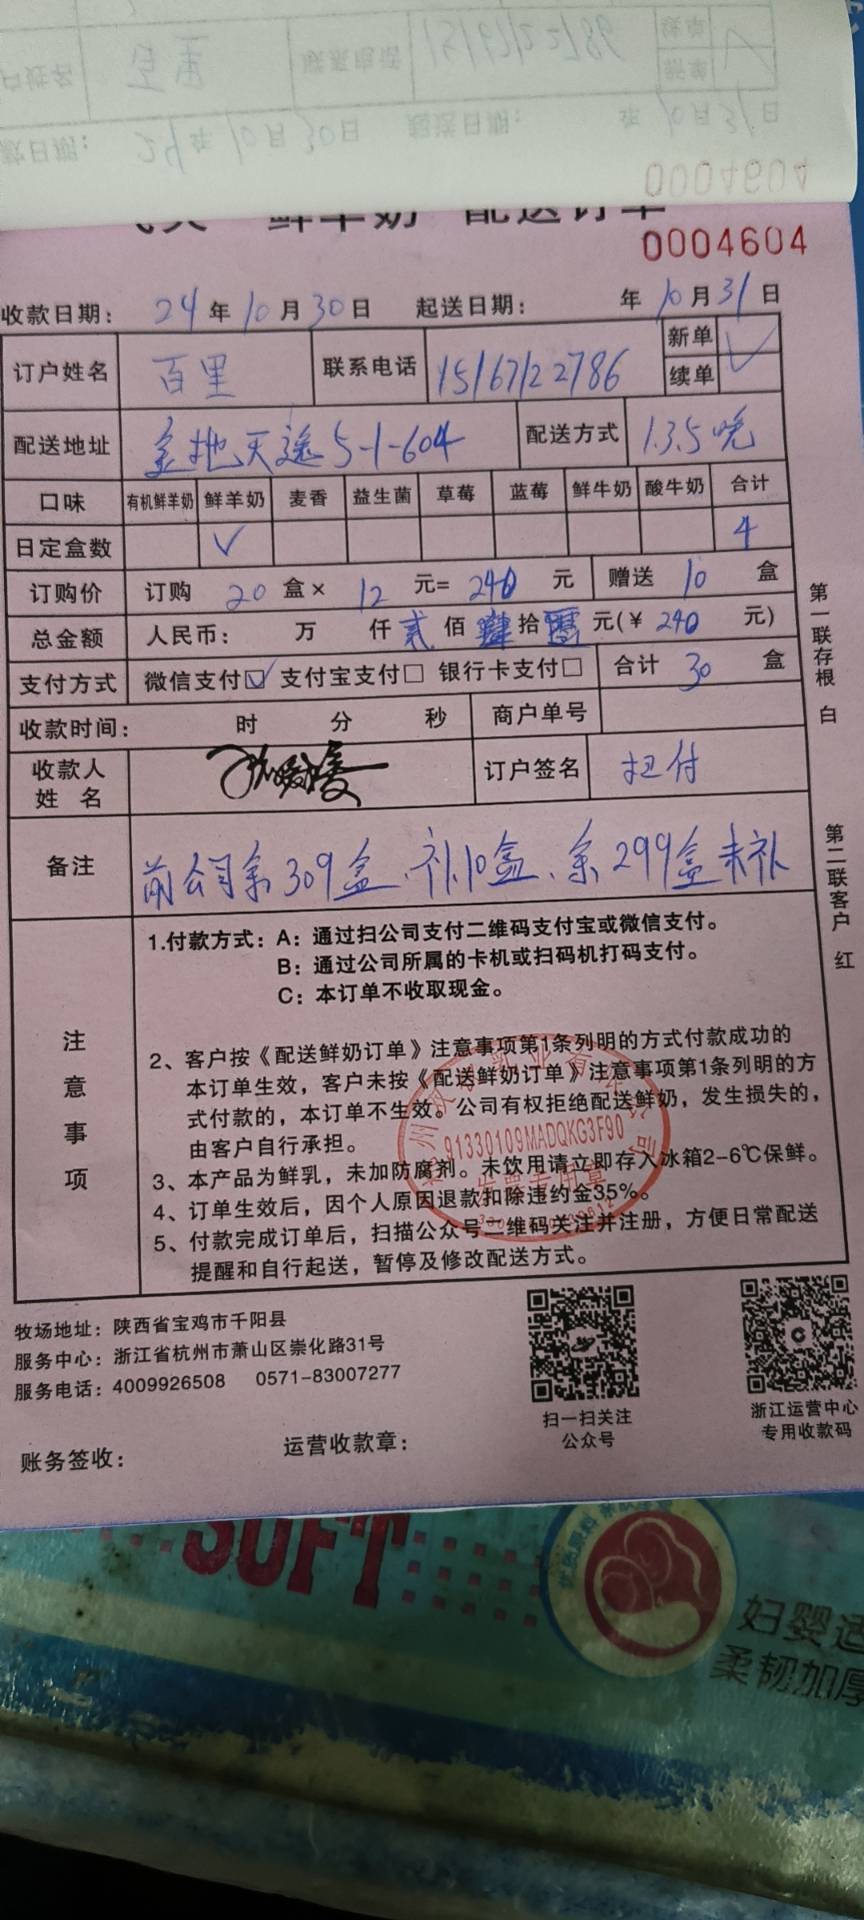 鲜羊奶 配送订单
0004604
收款日期: 24年10月30日 起送日期: 年10月31日
订户姓名 百里 联系电话 15167122786 新单 ✓
续单
配送地址 金地天逸5-1-604 配送方式 1.3.5晚
口味 有机鲜羊奶 鲜羊奶 麦香 益生菌 草莓 蓝莓 鲜牛奶 酸牛奶 合计
日定盒数 ✓ 4
订购价 订购 20 盒× 12 元= 240 元 赠送 10 盒
总金额 人民币: 万 仟 贰 佰 肆 拾 元(¥ 240 元)
支付方式 微信支付☑ 支付宝支付□ 银行卡支付□ 合计 30 盒
收款时间: 时 分 秒 商户单号
收款人
姓 名 订户签名 扫付
备注 前公司余309盒、补10盒、余299盒未补
注意事项
1.付款方式: A: 通过扫公司支付二维码支付宝或微信支付。
B: 通过公司所属的卡机或扫码机打码支付。
C: 本订单不收取现金。
2、客户按《配送鲜奶订单》注意事项第1条列明的方式付款成功的
本订单生效，客户未按《配送鲜奶订单》注意事项第1条列明的方
式付款的，本订单不生效。公司有权拒绝配送鲜奶，发生损失的，
由客户自行承担。
3、本产品为鲜乳，未加防腐剂。未饮用请立即存入冰箱2-6℃保鲜。
4、订单生效后，因个人原因退款扣除违约金35%。
5、付款完成订单后，扫描公众号二维码关注并注册，方便日常配送
提醒和自行起送，暂停及修改配送方式。
91330109MADQKG3F90
发票专用章
第一联存根 白
第二联客户 红
牧场地址: 陕西省宝鸡市千阳县
服务中心: 浙江省杭州市萧山区崇化路31号
服务电话: 4009926508 0571-83007277
扫一扫关注
公众号
浙江运营中心
专用收款码
账务签收: 运营收款章:
SOFT
妇婴适
柔韧加厚